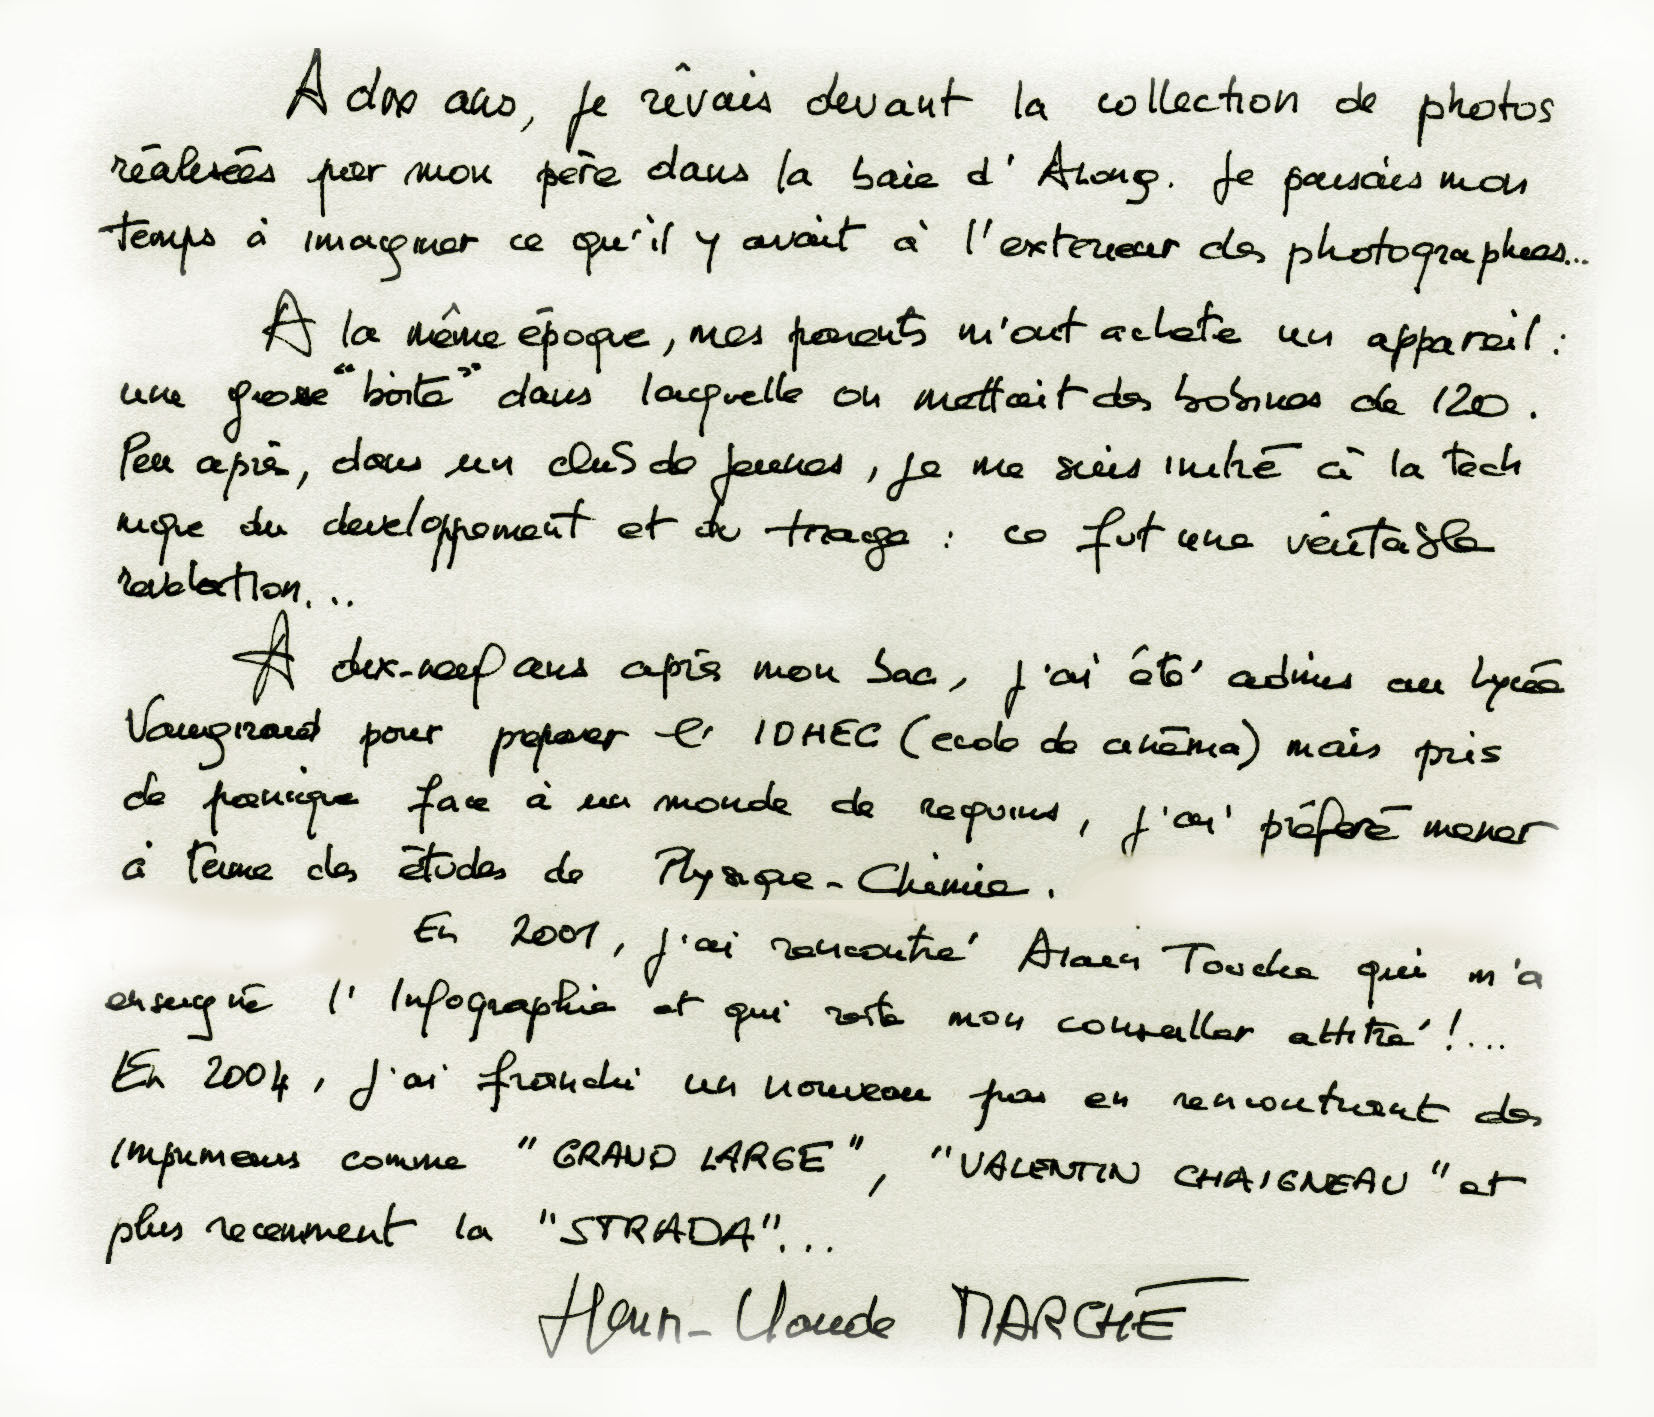 A dix ans, je rêvais devant la collection de photos
réalisées par mon père dans la baie d'Along. Je passais mon
temps à imaginer ce qu'il y avait à l'exterieur des photographies...
A la même époque, mes parents m'ont acheté un appareil :
une grosse "boite" dans laquelle on mettait des bobines de 120.
Peu après, dans un club de jeunes, je me suis initié à la tech
nique du developpement et du tirage : ce fut une véritable
revelation...
A dix-neuf ans après mon bac, j'ai été admis au Lycée
Vaugirard pour preparer l'IDHEC (ecole de cinéma) mais pris
de panique face à un monde de requins, j'ai préféré mener
à terme des études de Physique-Chimie.
En 2001, j'ai rencontré Alain Touche qui m'a
enseigné l'Infographie et qui reste mon conseiller attitré !...
En 2004, j'ai franchi un nouveau pas en rencontrant des
imprimeurs comme "GRAND LARGE", "VALENTIN CHAIGNEAU" et
plus recemment la "STRADA"...
Henri-Claude MARCHÉ